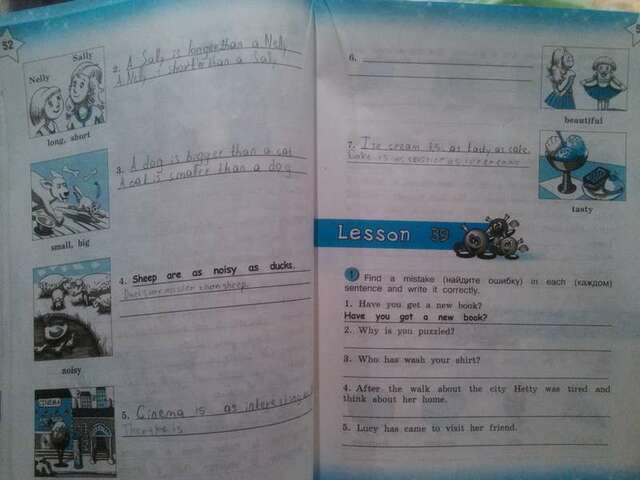 52
Nelly
Sally
long, short
2. A Sally is longer than a Nelly
A Nelly is shorter than a Sally
3. A dog is bigger than a cat
A cat is smaller than a dog
small, big
4. Sheep are as noisy as ducks.
noisy
CINEMA
5. Cinema is as interesting
6.
beautiful
7. Ice cream is as tasty as cake.
tasty
Lesson 39
1 Find a mistake (найдите ошибку) in each (каждом)
sentence and write it correctly.
1. Have you get a new book?
Have you got a new book?
2. Why is you puzzled?
3. Who has wash your shirt?
4. After the walk about the city Hetty was tired and
think about her home.
5. Lucy has came to visit her friend.